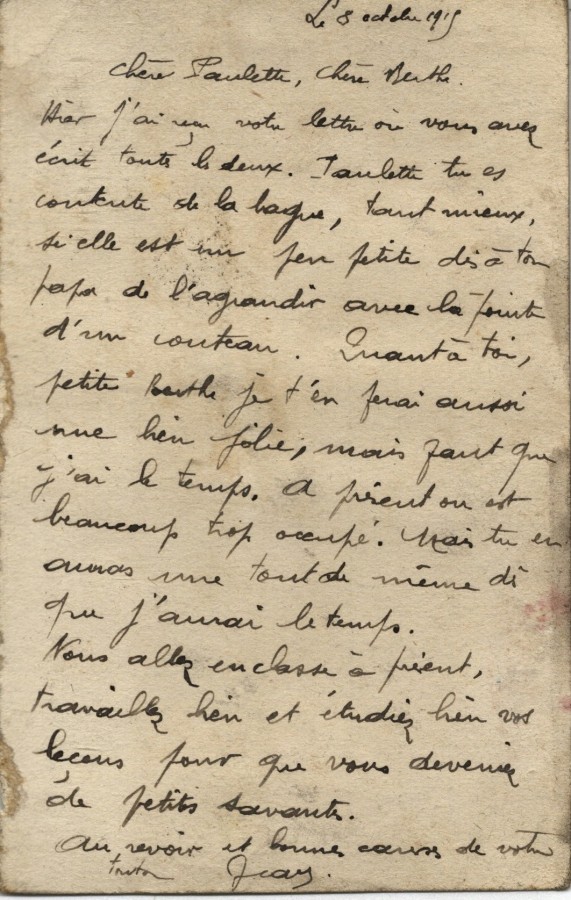 Le 8 octobre 1915
Chère Paulette, Chère Berthe.
Hier j'ai reçu votre lettre où vous avez
écrit toute les deux. Paulette tu es
contente de la bague, tant mieux,
si elle est un peu petite dis à ton
papa de l'agrandir avec la pointe
d'un couteau. Quant à toi,
petite Berthe je t'en ferai aussi
une bien jolie, mais faut que
j'ai le temps. A présent on est
beaucoup trop occupé. Mais tu en
auras une tout de même dè
que j'aurai le temps.
Nous allez en classe à présent,
travaillez bien et étudiez bien vos
leçons pour que vous deveniez
de petits savants.
Au revoir et bonnes caresses de votre
tonton Jean.